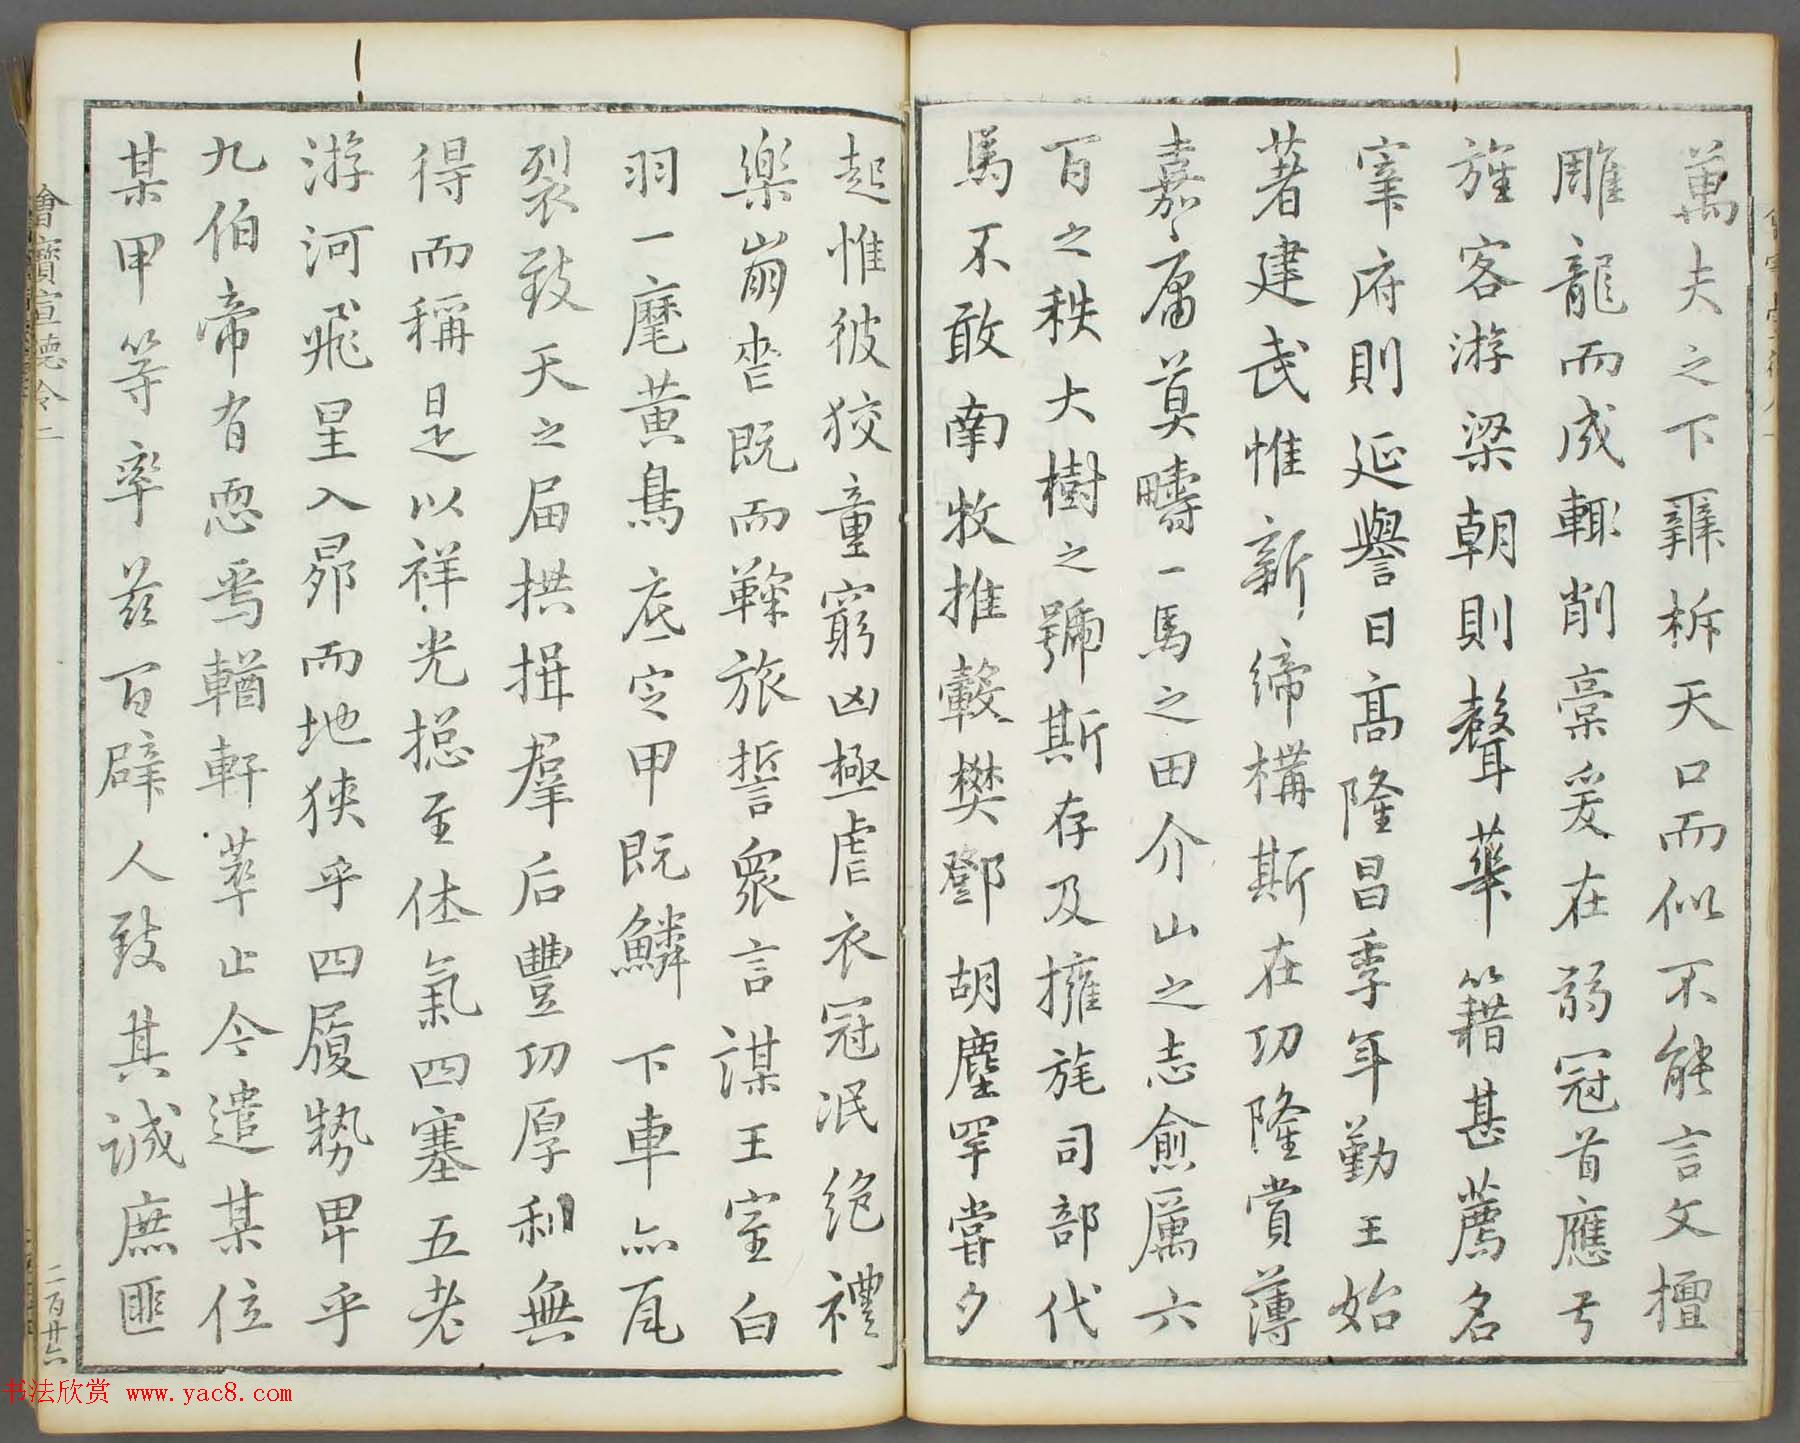 萬夫之下辭析天口而似不能言文擅
雕龍而成輒削稾爰在弱冠首應弓
旌客游梁朝則聲華籍甚薦名
宰府則延譽自高隆昌季年勤王始
著建武惟新締構斯在功隆賞薄
嘉庸莫疇一馬之田介山之志愈厲六
百之秩大樹之號斯存及擁旄司部代
馬不敢南牧推轂樊鄧胡塵罕嘗夕
起惟彼狡童窮凶極虐衣冠泯絕禮
樂崩喪既而鞠旅誓衆言謀王室白
羽一麾黃鳥底定甲既鱗下車亦瓦
裂致天之屆拱揖羣后豐功厚利無
得而稱是以祥光揔至休氣四塞五老
游河飛星入昴而地狹乎四履勢卑乎
九伯帝有恧焉輶軒萃止今遣某位
某甲等率茲百辟人致其誠庶匪
二百廿六
书法欣赏 www.yac8.com